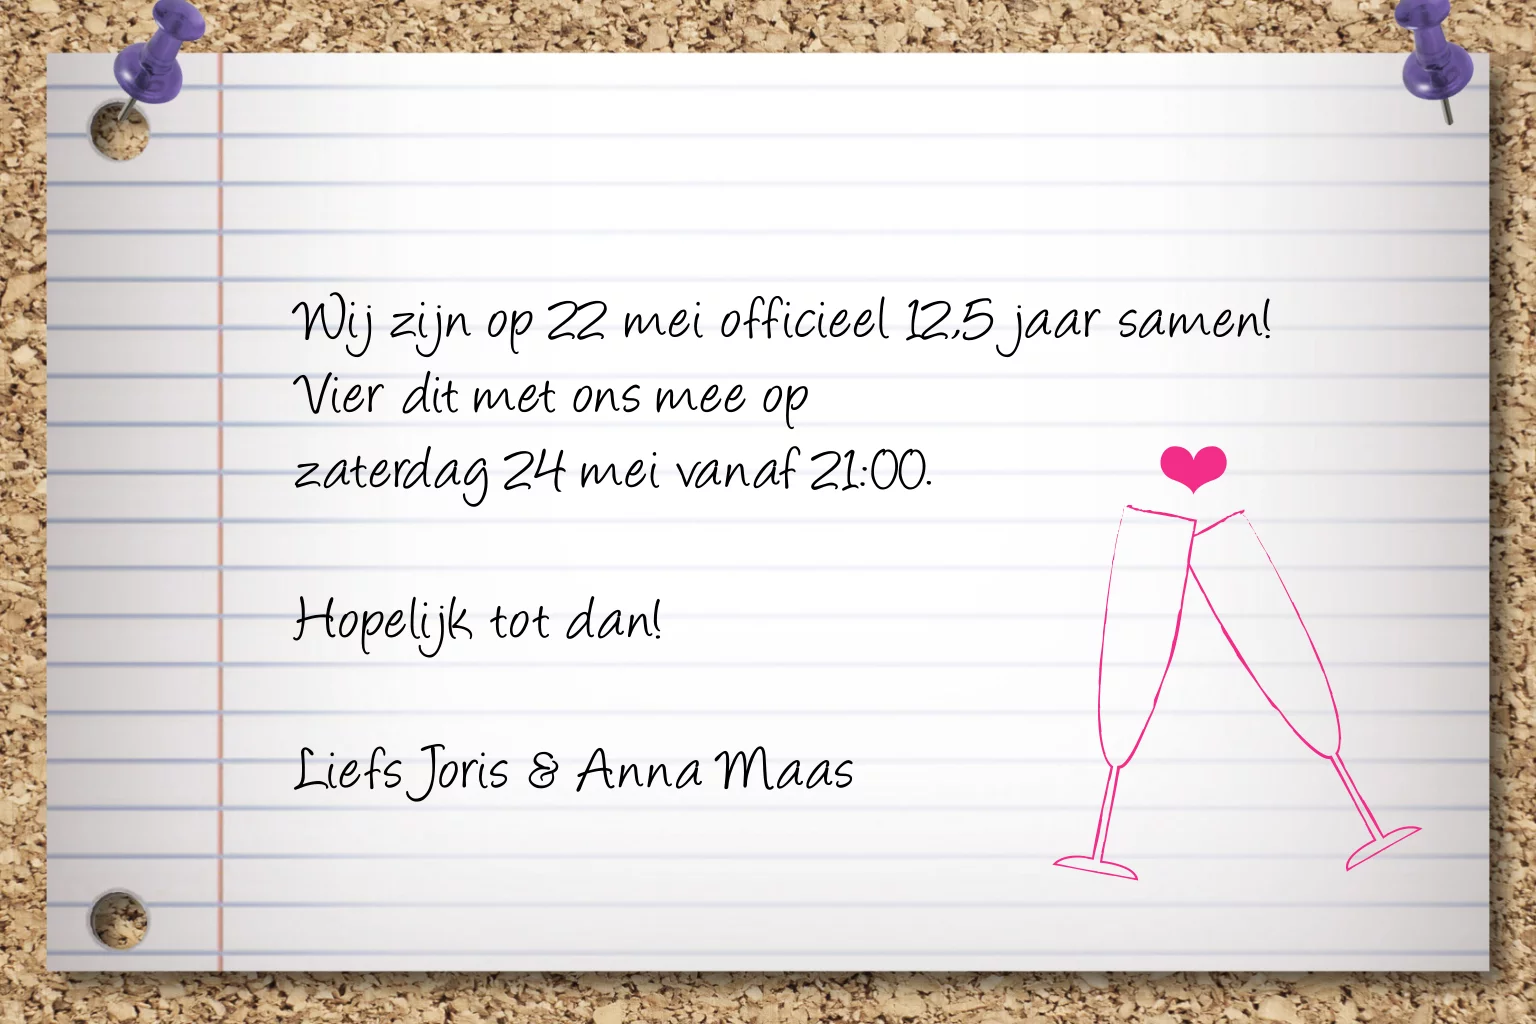 Wij zijn op 22 mei officieel 12,5 jaar samen!
Vier dit met ons mee op
zaterdag 24 mei vanaf 21:00.
Hopelijk tot dan!
Liefs Joris & Anna Maas